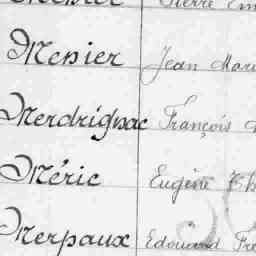 Pierre
Menier Jean Marie
Merdrignac François
Méric Eugène
Merpaux Edouard